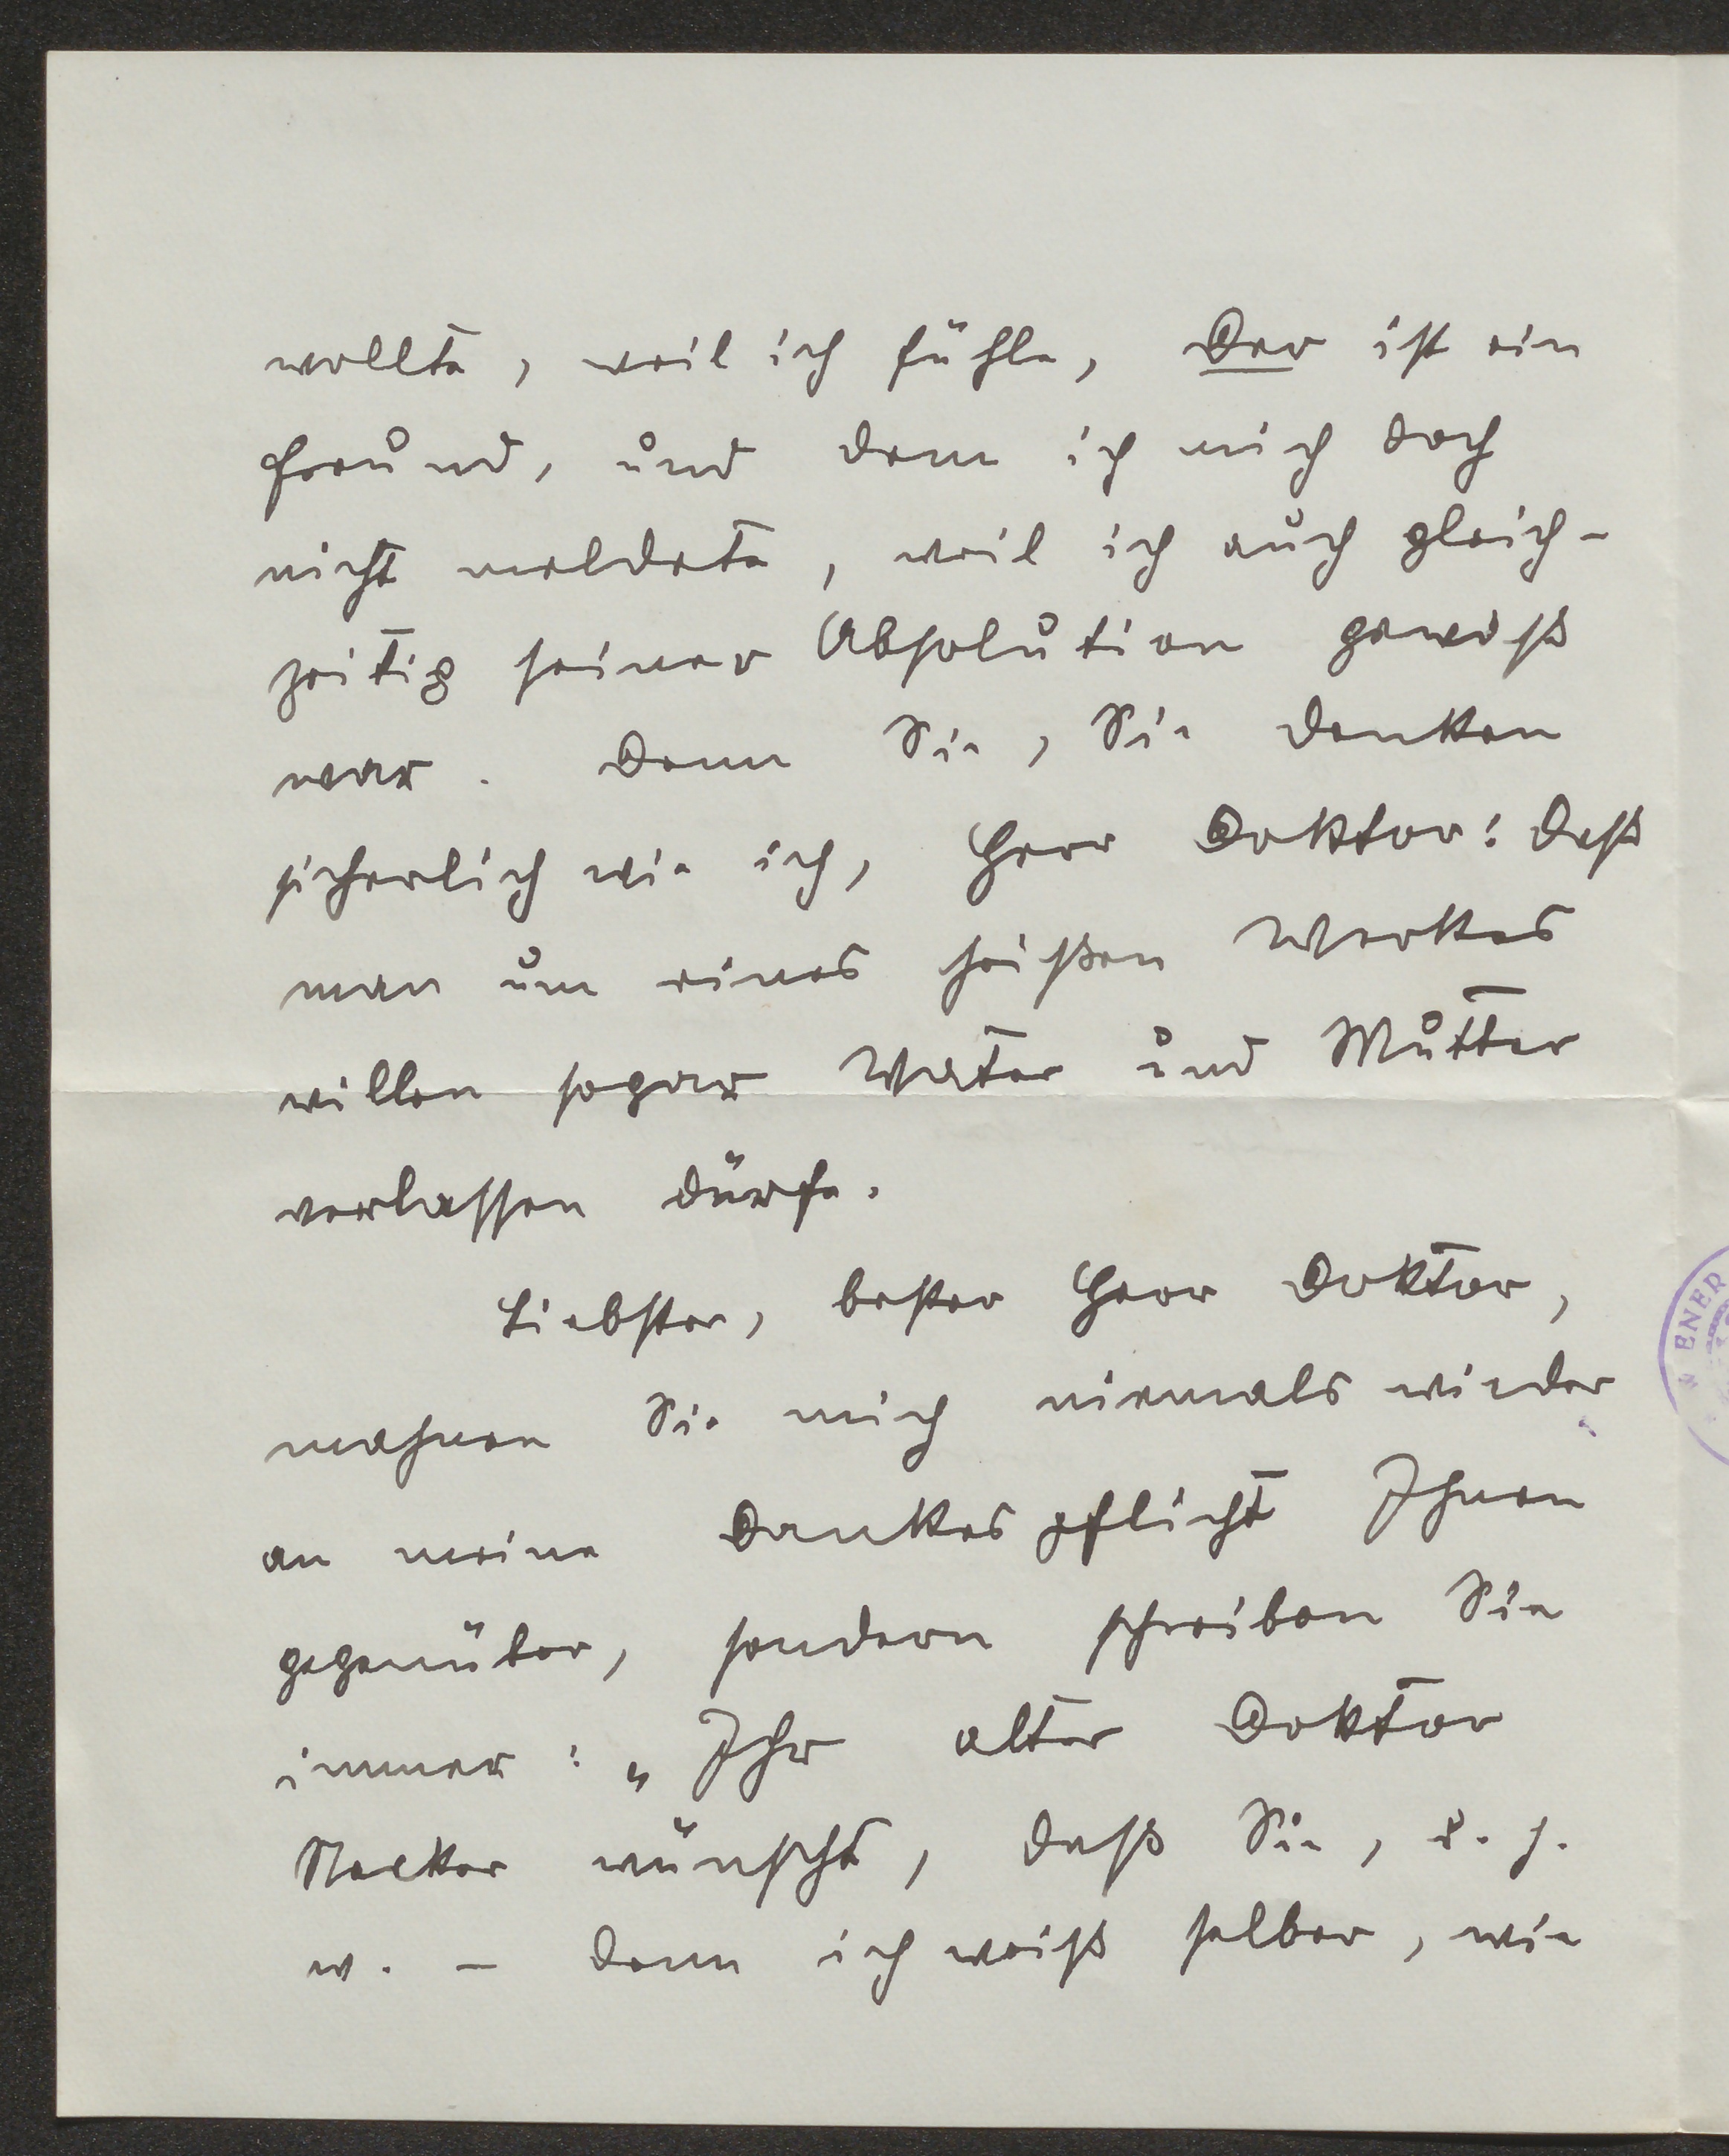 wollte, weil ich fühle, Der ist ein
Freund, und dem ich mich doch
nicht meldete, weil ich auch gleich-
zeitig seiner Absolution gewiß
war. Denn Sie, Sie denken
sicherlich wie ich, Herr Doktor: daß
man um eines heißen Werkes
willen sogar Vater und Mutter
verlassen dürfe.
Liebster, bester Herr Doktor,
mahnen Sie mich niemals wieder
an meine Dankespflicht Ihnen
gegenüber, sondern schreiben Sie
immer: „Ihr alter Doktor
Necker wünscht, daß Sie, u. s.
w. – denn ich weiß selber, wie